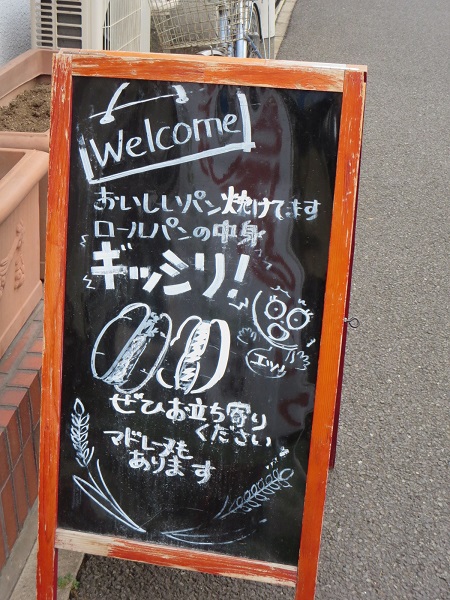 Welcome
おいしいパン焼けてます
ロールパンの中身
ギッシリ!
エッッ
ぜひお立ち寄り
ください
マドレーヌも
あります